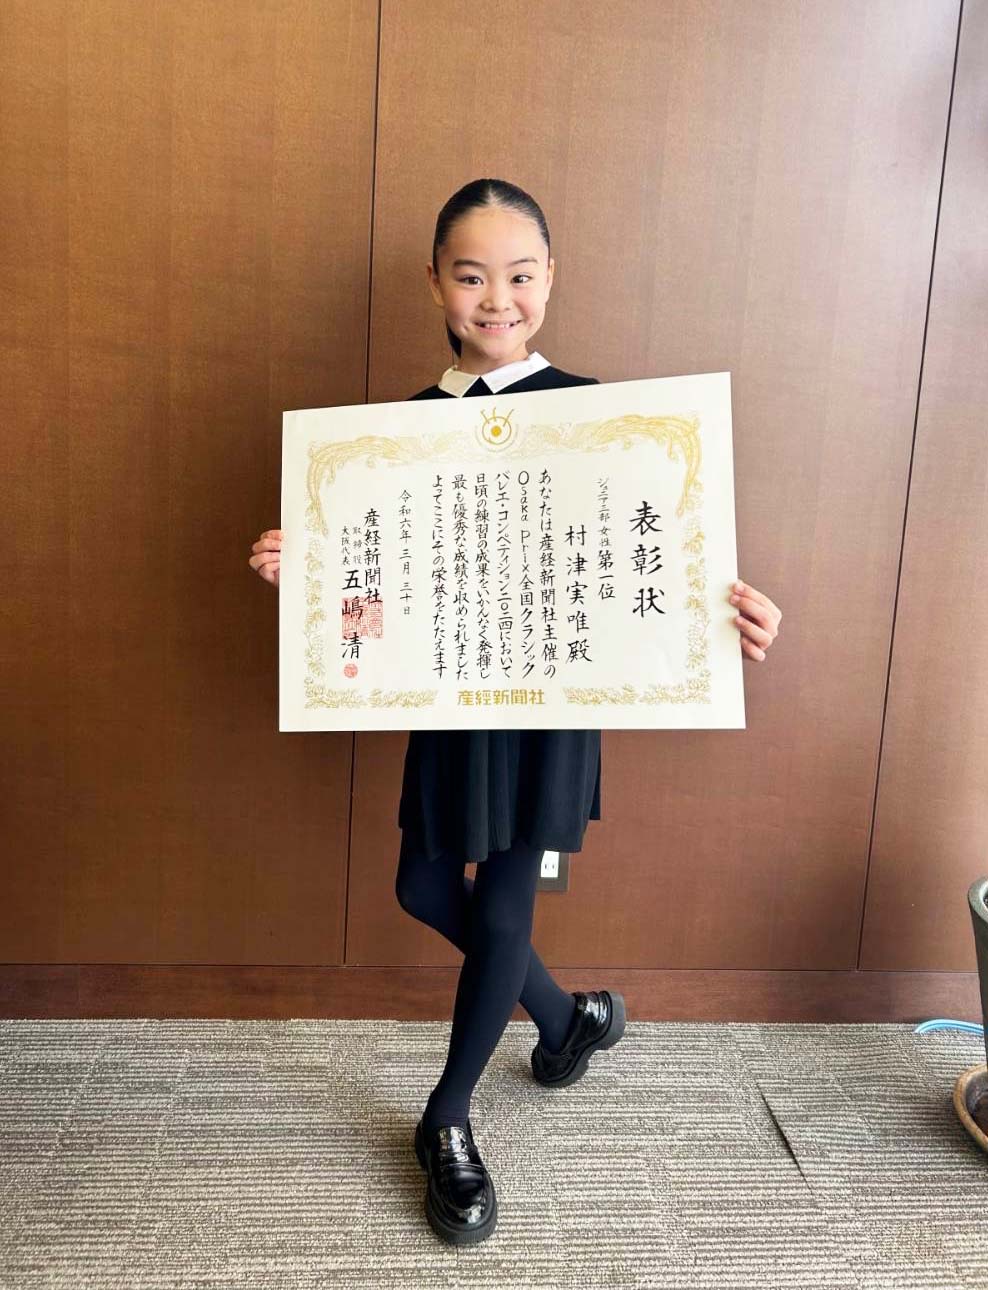 表彰状
ジュニア三部 女性 第一位
村津実唯殿
あなたは産経新聞社主催の
Osaka Prix全国クラシック
バレエ・コンペティション二〇二四において
日頃の練習の成果をいかんなく発揮し
最も優秀な成績を収められました
よってここにその栄誉をたたえます
令和六年三月三十日
産経新聞社
取締役
大阪代表 五嶋清
産経新聞社